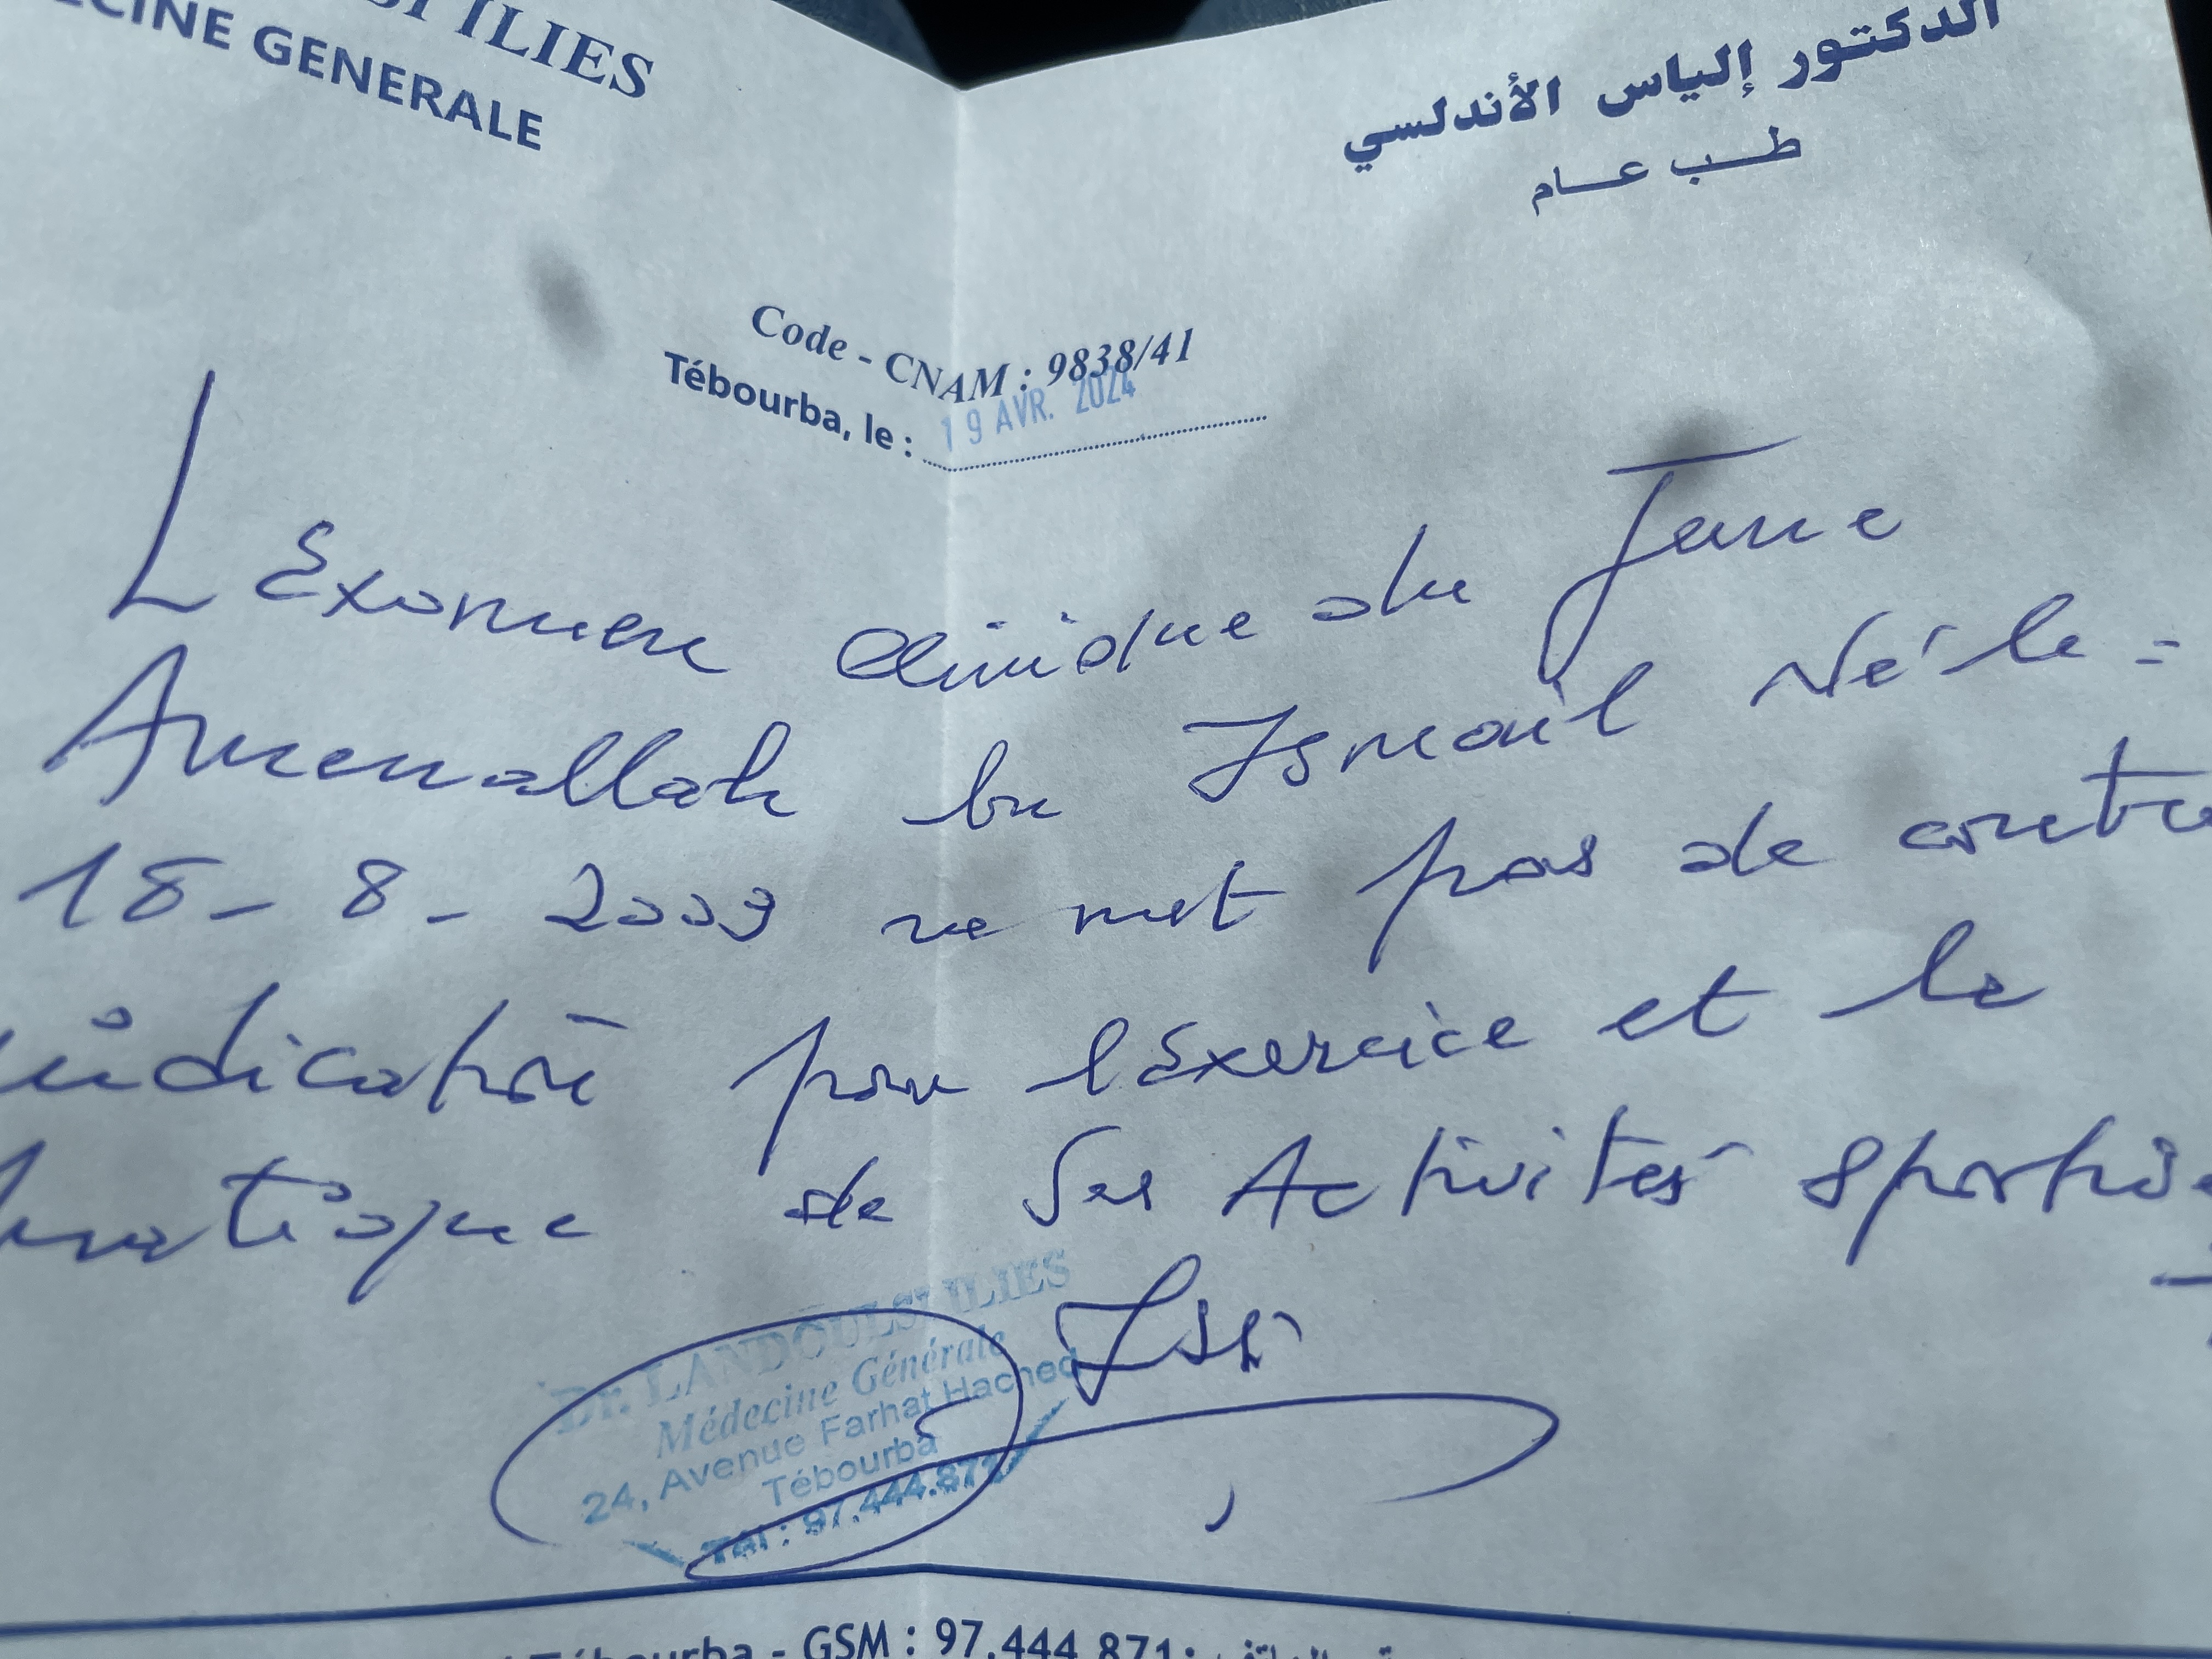 ILIES
الدكتور إلياس الأندلسي
CINE GENERALE
طب عام
Code - CNAM : 9838/41
Tébourba, le : 19 AVR. 2024
L'Examen clinique du Jeune
Amenallah bn Ismail Né le =
18 - 8 - 2009 ne met pas de contre
indication pour l'Exercice et la
pratique de Ses Activités sportives
Dr. LANDOULSI ILIES
Médecine Générale
24, Avenue Farhat Hached
Tébourba
Tél : 97.444.871
Tébourba - GSM : 97.444.871 :